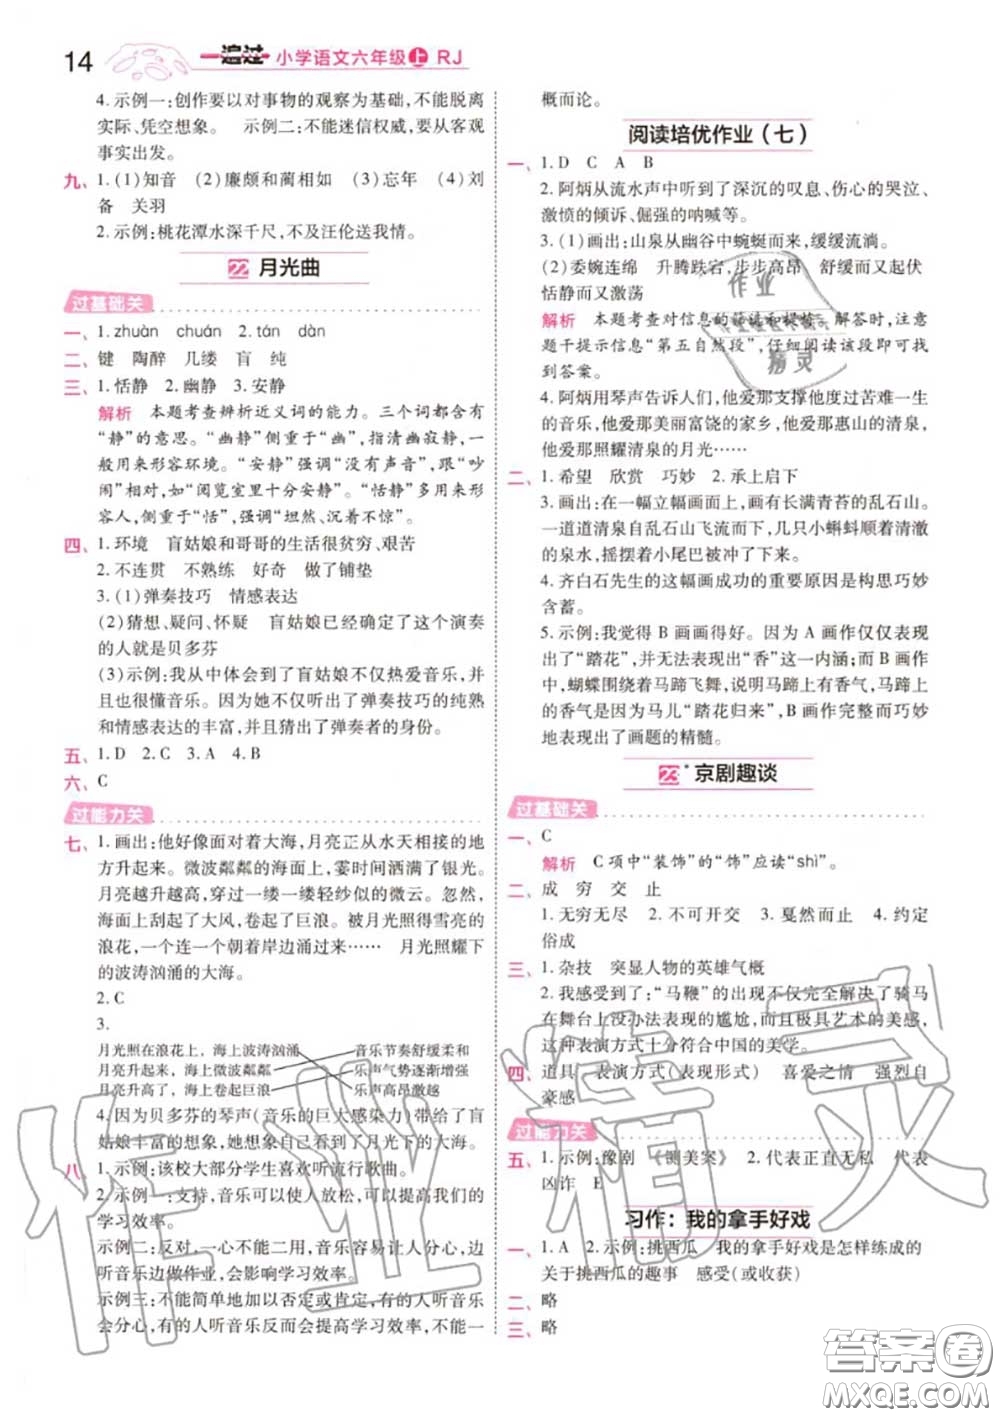 14 一遍过 小学语文六年级上 RJ
4. 示例一:创作要以对事物的观察为基础,不能脱离
实际、凭空想象。 示例二:不能迷信权威,要从客观
事实出发。
九、1. (1)知音 (2)廉颇和蔺相如 (3)忘年 (4)刘
备 关羽
2. 示例:桃花潭水深千尺,不及汪伦送我情。
22 月光曲
过基础关
一、1. zhuàn chuán 2. tán dàn
二、键 陶醉 几缕 盲 纯
三、1. 恬静 2. 幽静 3. 安静
解析 本题考查辨析近义词的能力。三个词都含有
“静”的意思。“幽静”侧重于“幽”,指清幽寂静,一
般用来形容环境。“安静”强调“没有声音”,跟“吵
闹”相对,如“阅览室里十分安静”。“恬静”多用来形
容人,侧重于“恬”,强调“坦然、沉着不惊”。
四、1. 环境 盲姑娘和哥哥的生活很贫穷、艰苦
2. 不连贯 不熟练 好奇 做了铺垫
3. (1)弹奏技巧 情感表达
(2)猜想、疑问、怀疑 盲姑娘已经确定了这个演奏
的人就是贝多芬
(3)示例:我从中体会到了盲姑娘不仅热爱音乐,并
且也很懂音乐。因为她不仅听出了弹奏技巧的纯熟
和情感表达的丰富,并且猜出了弹奏者的身份。
五、1. D 2. C 3. A 4. B
六、C
过能力关
七、1. 画出:他好像面对着大海,月亮正从水天相接的地
方升起来。微波粼粼的海面上,霎时间洒满了银光。
月亮越升越高,穿过一缕一缕轻纱似的微云。忽然,
海面上刮起了大风,卷起了巨浪。被月光照得雪亮的
浪花,一个连一个朝着岸边涌过来…… 月光照耀下
的波涛汹涌的大海。
2. C
3.
月光照在浪花上,海上波涛汹涌 音乐节奏舒缓柔和
月亮升起来,海上微波粼粼 乐声气势逐渐增强
月亮升高了,海上卷起巨浪 乐声高昂激越
4. 因为贝多芬的琴声(音乐的巨大感染力)带给了盲
姑娘丰富的想象,她好像自己看到了月光下的大海。
八、1. 示例:该校大部分学生喜欢听流行歌曲。
2. 示例一:支持,音乐可以使人放松,可以提高我们的
学习效率。
示例二:反对,一心不能二用,音乐容易让人分心,边
听音乐边做作业,会影响学习效率。
示例三:不能简单地加以否定或肯定,有的人听音乐
会分心,有的人听音乐反而会提高学习效率,不能一
概而论。
阅读培优作业(七)
一、1. D C A B
2. 阿炳从流水声中听到了深沉的叹息、伤心的哭泣、
激愤的倾诉、倔强的呐喊等。
3. (1)画出:山泉从幽谷中蜿蜒而来,缓缓流淌。
(2)委婉连绵 升腾跌宕,步步高昂 舒缓而又起伏
恬静而又激荡
解析 本题考查对信息的筛选和提炼。解答时,注意
题干提示信息“第五自然段”,仔细阅读该段即可找
到答案。
4. 阿炳用琴声告诉人们,他爱那支撑他度过苦难一生
的音乐,他爱那美丽富饶的家乡,他爱那惠山的清泉,
他爱那照耀清泉的月光……
二、1. 希望 欣赏 巧妙 2. 承上启下
3. 画出:在一幅立幅画面上,画有长满青苔的乱石山。
一道道清泉自乱石山飞流而下,几只小蝌蚪顺着清澈
的泉水,摇摆着小尾巴被冲了下来。
4. 齐白石先生的这幅画成功的重要原因是构思巧妙
含蓄。
5. 示例:我觉得 B 画画得好。因为 A 画作仅仅表现
出了“踏花”,并无法表现出“香”这一内涵;而 B 画作
中,蝴蝶围绕着马蹄飞舞,说明马蹄上有香气,马蹄上
的香气是因为马儿“踏花归来”,B 画作完整而巧妙
地表现出了画题的精髓。
23* 京剧趣谈
过基础关
一、C
解析 C 项中“装饰”的“饰”应读“shì”。
二、成 穷 交 止
1. 无穷无尽 2. 不可开交 3. 戛然而止 4. 约定
俗成
三、1. 杂技 突显人物的英雄气概
2. 我感受到了:“马鞭”的出现不仅完全解决了骑马
在舞台上没办法表现的尴尬,而且极具艺术的美感,
这种表演方式十分符合中国的美学。
四、道具 表演方式(表现形式) 喜爱之情 强烈自
豪感
过能力关
五、1. 示例:豫剧 《铡美案》 2. 代表正直无私 代表
凶诈 B
习作:我的拿手好戏
一、1. A 2. 示例:挑西瓜 我的拿手好戏是怎样练成的
关于挑西瓜的趣事 感受(或收获)
二、略
三、略
作业精灵
答案圈
MXQE.COM